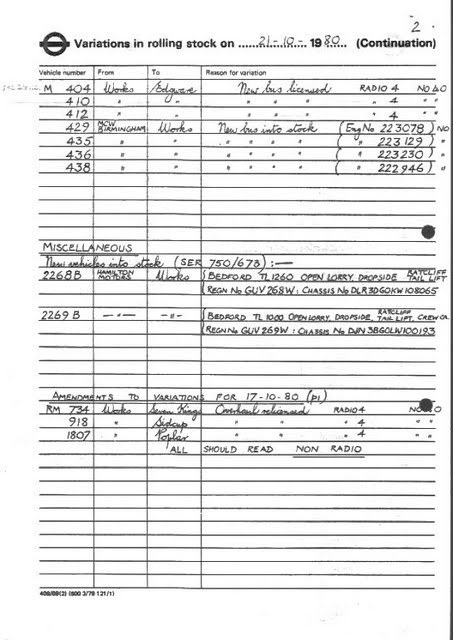 2
Variations in rolling stock on 21-10- 1980 (Continuation)
Vehicle number From To Reason for variation
M 404 Works Edgware New bus licensed RADIO 4
410 " " " " " " 4 " "
412 " " " " " " 4 " "
429 MCW BIRMINGHAM Works New bus into stock (Eng No 223078) NO
435 " " " " " " ( " 223129) "
436 " " " " " " ( " 223230) "
438 " " " " " " ( " 222946) "
MISCELLANEOUS
New vehicles into stock (SER 750/673) :—
2268B HAMILTON MOTORS Works BEDFORD TL1260 OPEN LORRY DROPSIDE RATCLIFF TAIL LIFT
REGN No GUV 268W : CHASSIS No DLR3DGOKW108065
2269B —"— —"— BEDFORD TL 1000 OPEN LORRY, DROPSIDE, RATCLIFF TAIL LIFT, CREW
REGN No GUV 269W : CHASSIS No
AMENDMENTS TO VARIATIONS FOR 17-10-80 (p1)
RM 734 Works Seven Kings Overhaul relicensed RADIO 4
918 " Sidcup " " " 4 " "
1807 " Poplar " " " 4 " "
ALL SHOULD READ NON RADIO
409/89(2) (600 3/79 121/1)